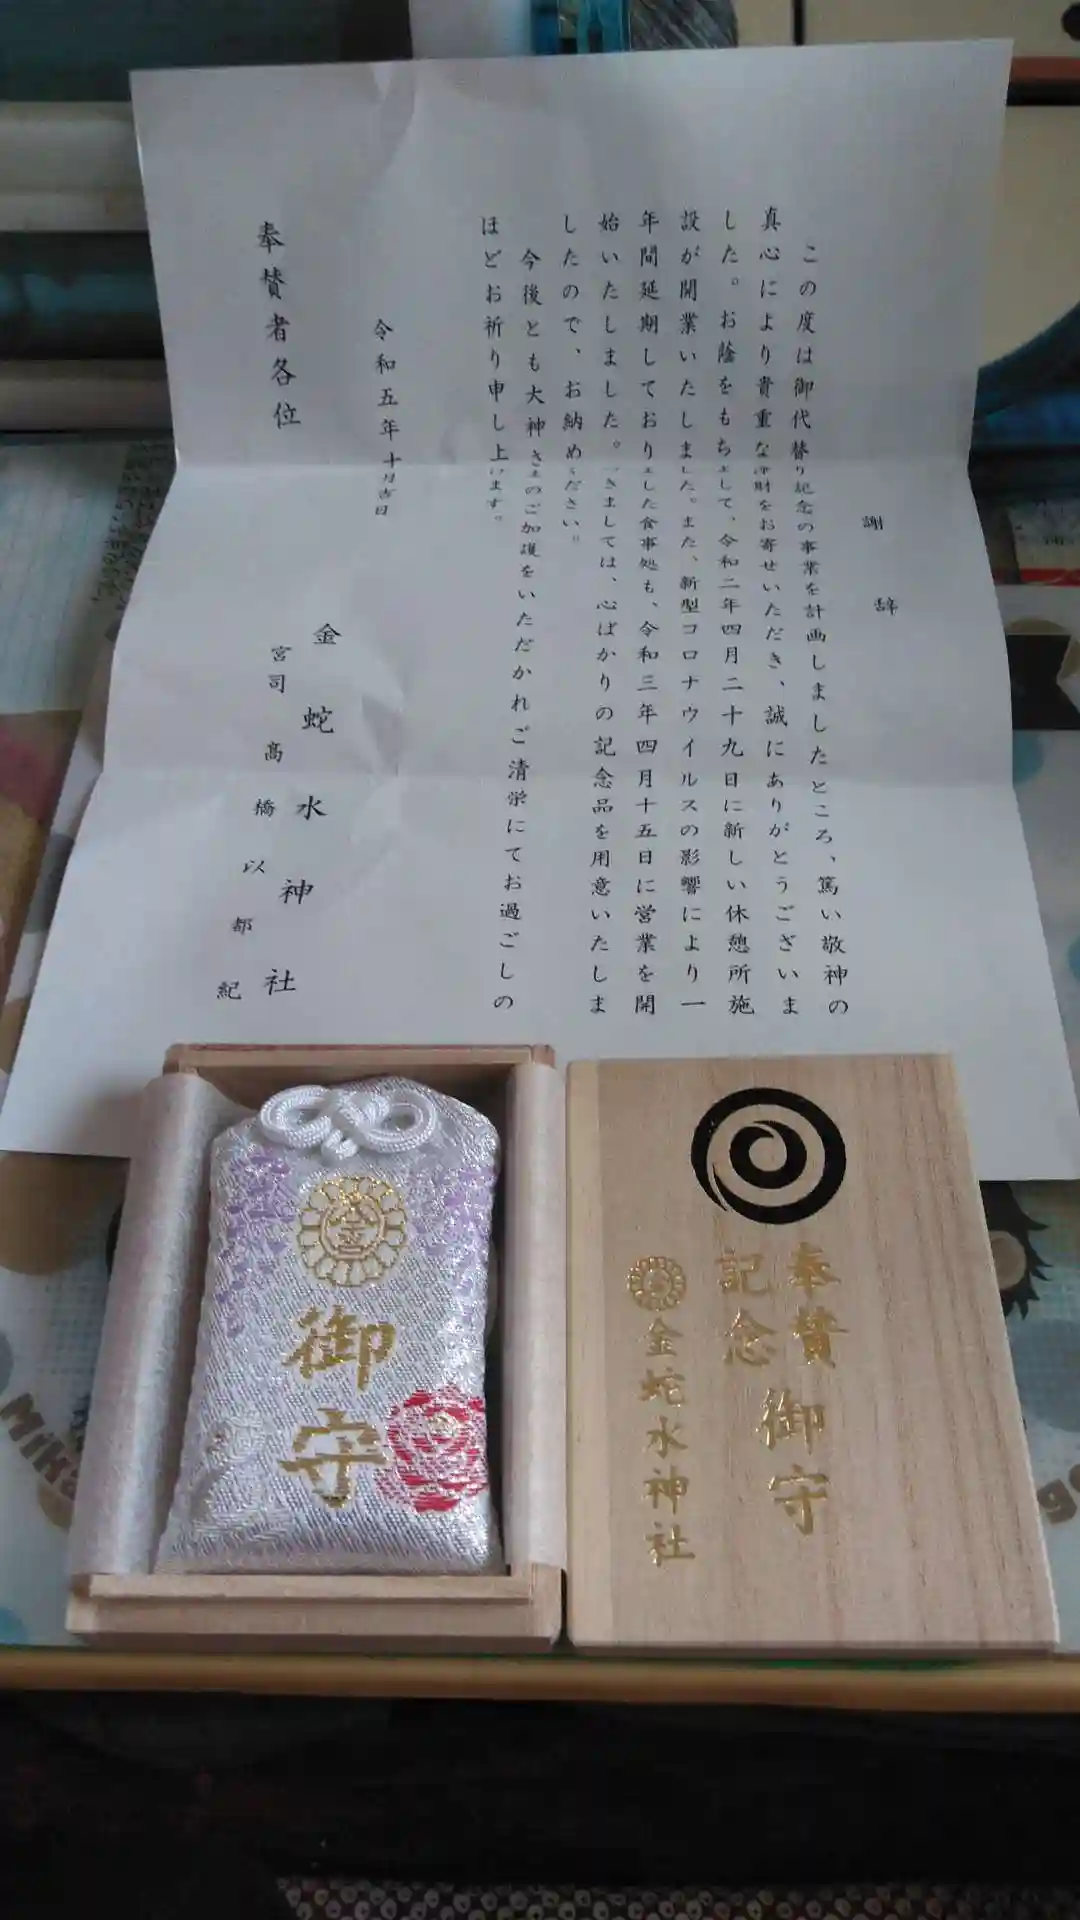 謝辞
この度は御代替り記念の事業を計画しましたところ、篤い敬神の
真心により貴重な浄財をお寄せいただき、誠にありがとうございま
した。お蔭をもちまして、令和二年四月二十九日に新しい休憩所施
設が開業いたしました。また、新型コロナウイルスの影響により一
年間延期しておりました食事処も、令和三年四月十五日に営業を開
始いたしました。つきましては、心ばかりの記念品を用意いたしま
したので、お納めください。
今後とも大神さまのご加護をいただかれご清栄にてお過ごしの
ほどお祈り申し上げます。
令和五年十月吉日
金蛇水神社
宮司 高橋以都紀
奉賛者各位
御守
奉賛
記念
御守
金蛇水神社
Mika